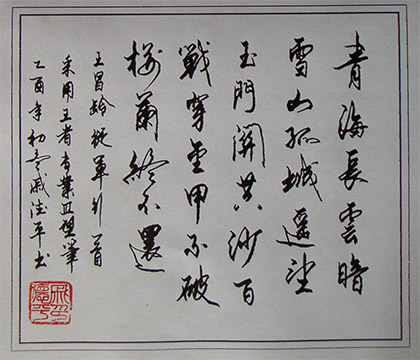 青海長雲暗
雪山孤城遥望
玉門關黄沙百
戰穿金甲不破
樓蘭終不還
王昌龄從軍行一首
采用王者专业筆
乙酉年初冬戚德平书